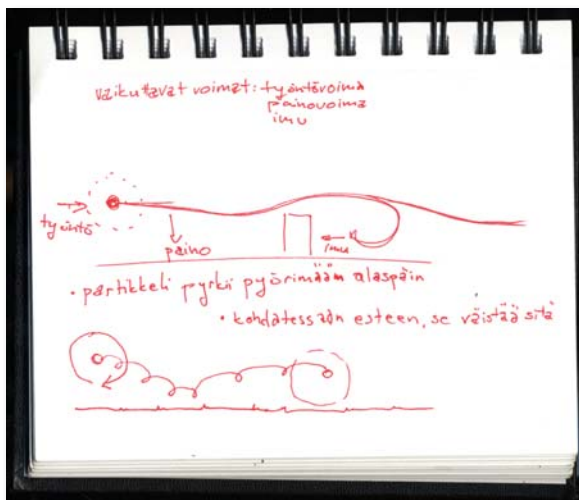 vaikuttavat voimat: työntövoima
painovoima
imu
työntö
paino
imu
• partikkeli pyrkii pyörimään alaspäin
• kohdatessaan esteen, se väistää sitä